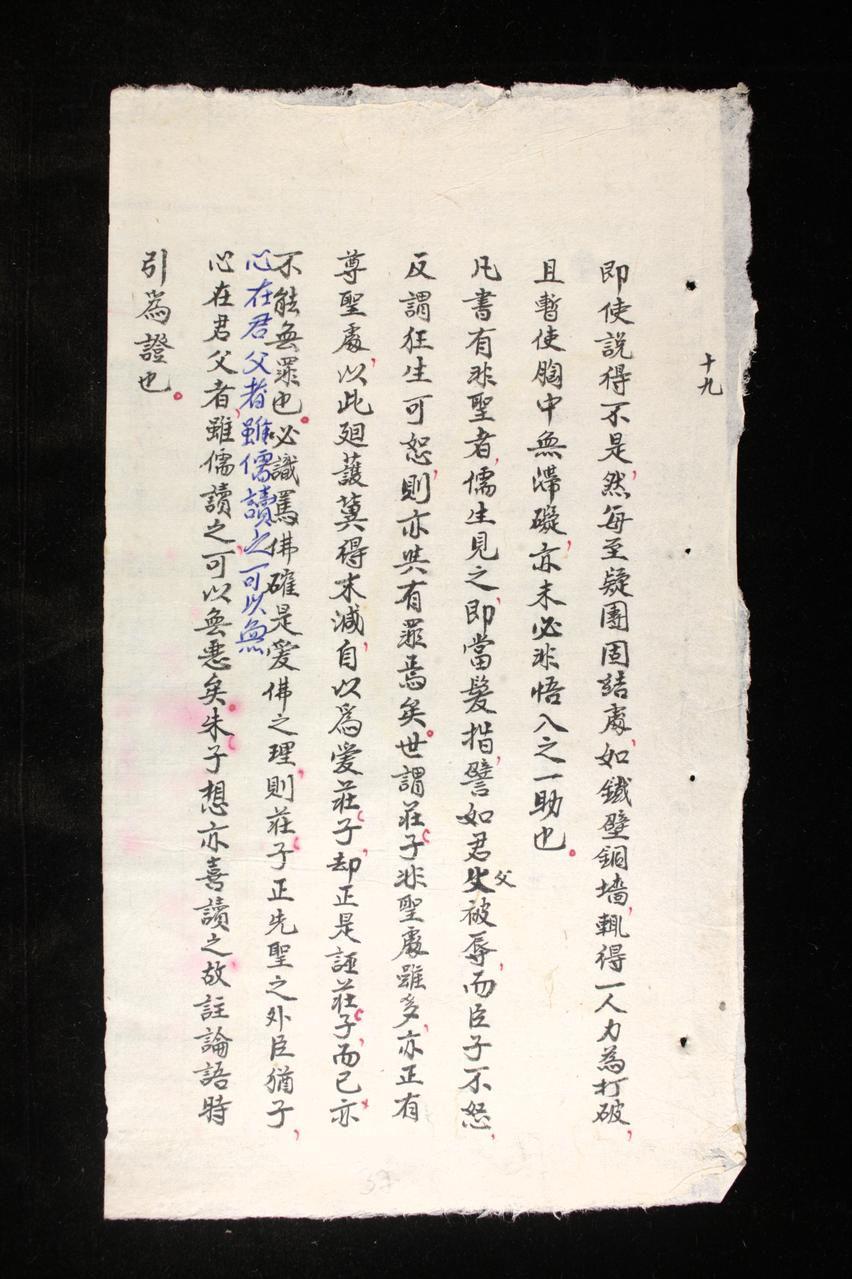 十九
即使說得不是，然每至疑團固結處，如鐵壁銅墻，輒得一人力為打破，
且暫使胸中無滯礙，亦未必非悟入之一助也。
凡書有非聖者，儒生見之，即當髮指，譬如君父被辱，而臣子不怒，
反謂狂生可恕，則亦共有罪焉矣。世謂莊子非聖處雖多，亦正有
尊聖處，以此廻護冀得末減，自以爲愛莊子，却正是誣莊子，而已亦
不能無罪也。必識罵佛確是愛佛之理，則莊子正先聖之外臣猶子，
心在君父者，雖儒讀之可以無
心在君父者，雖儒讀之，可以無惡矣。朱子想亦喜讀之，故註論語時
引爲證也。